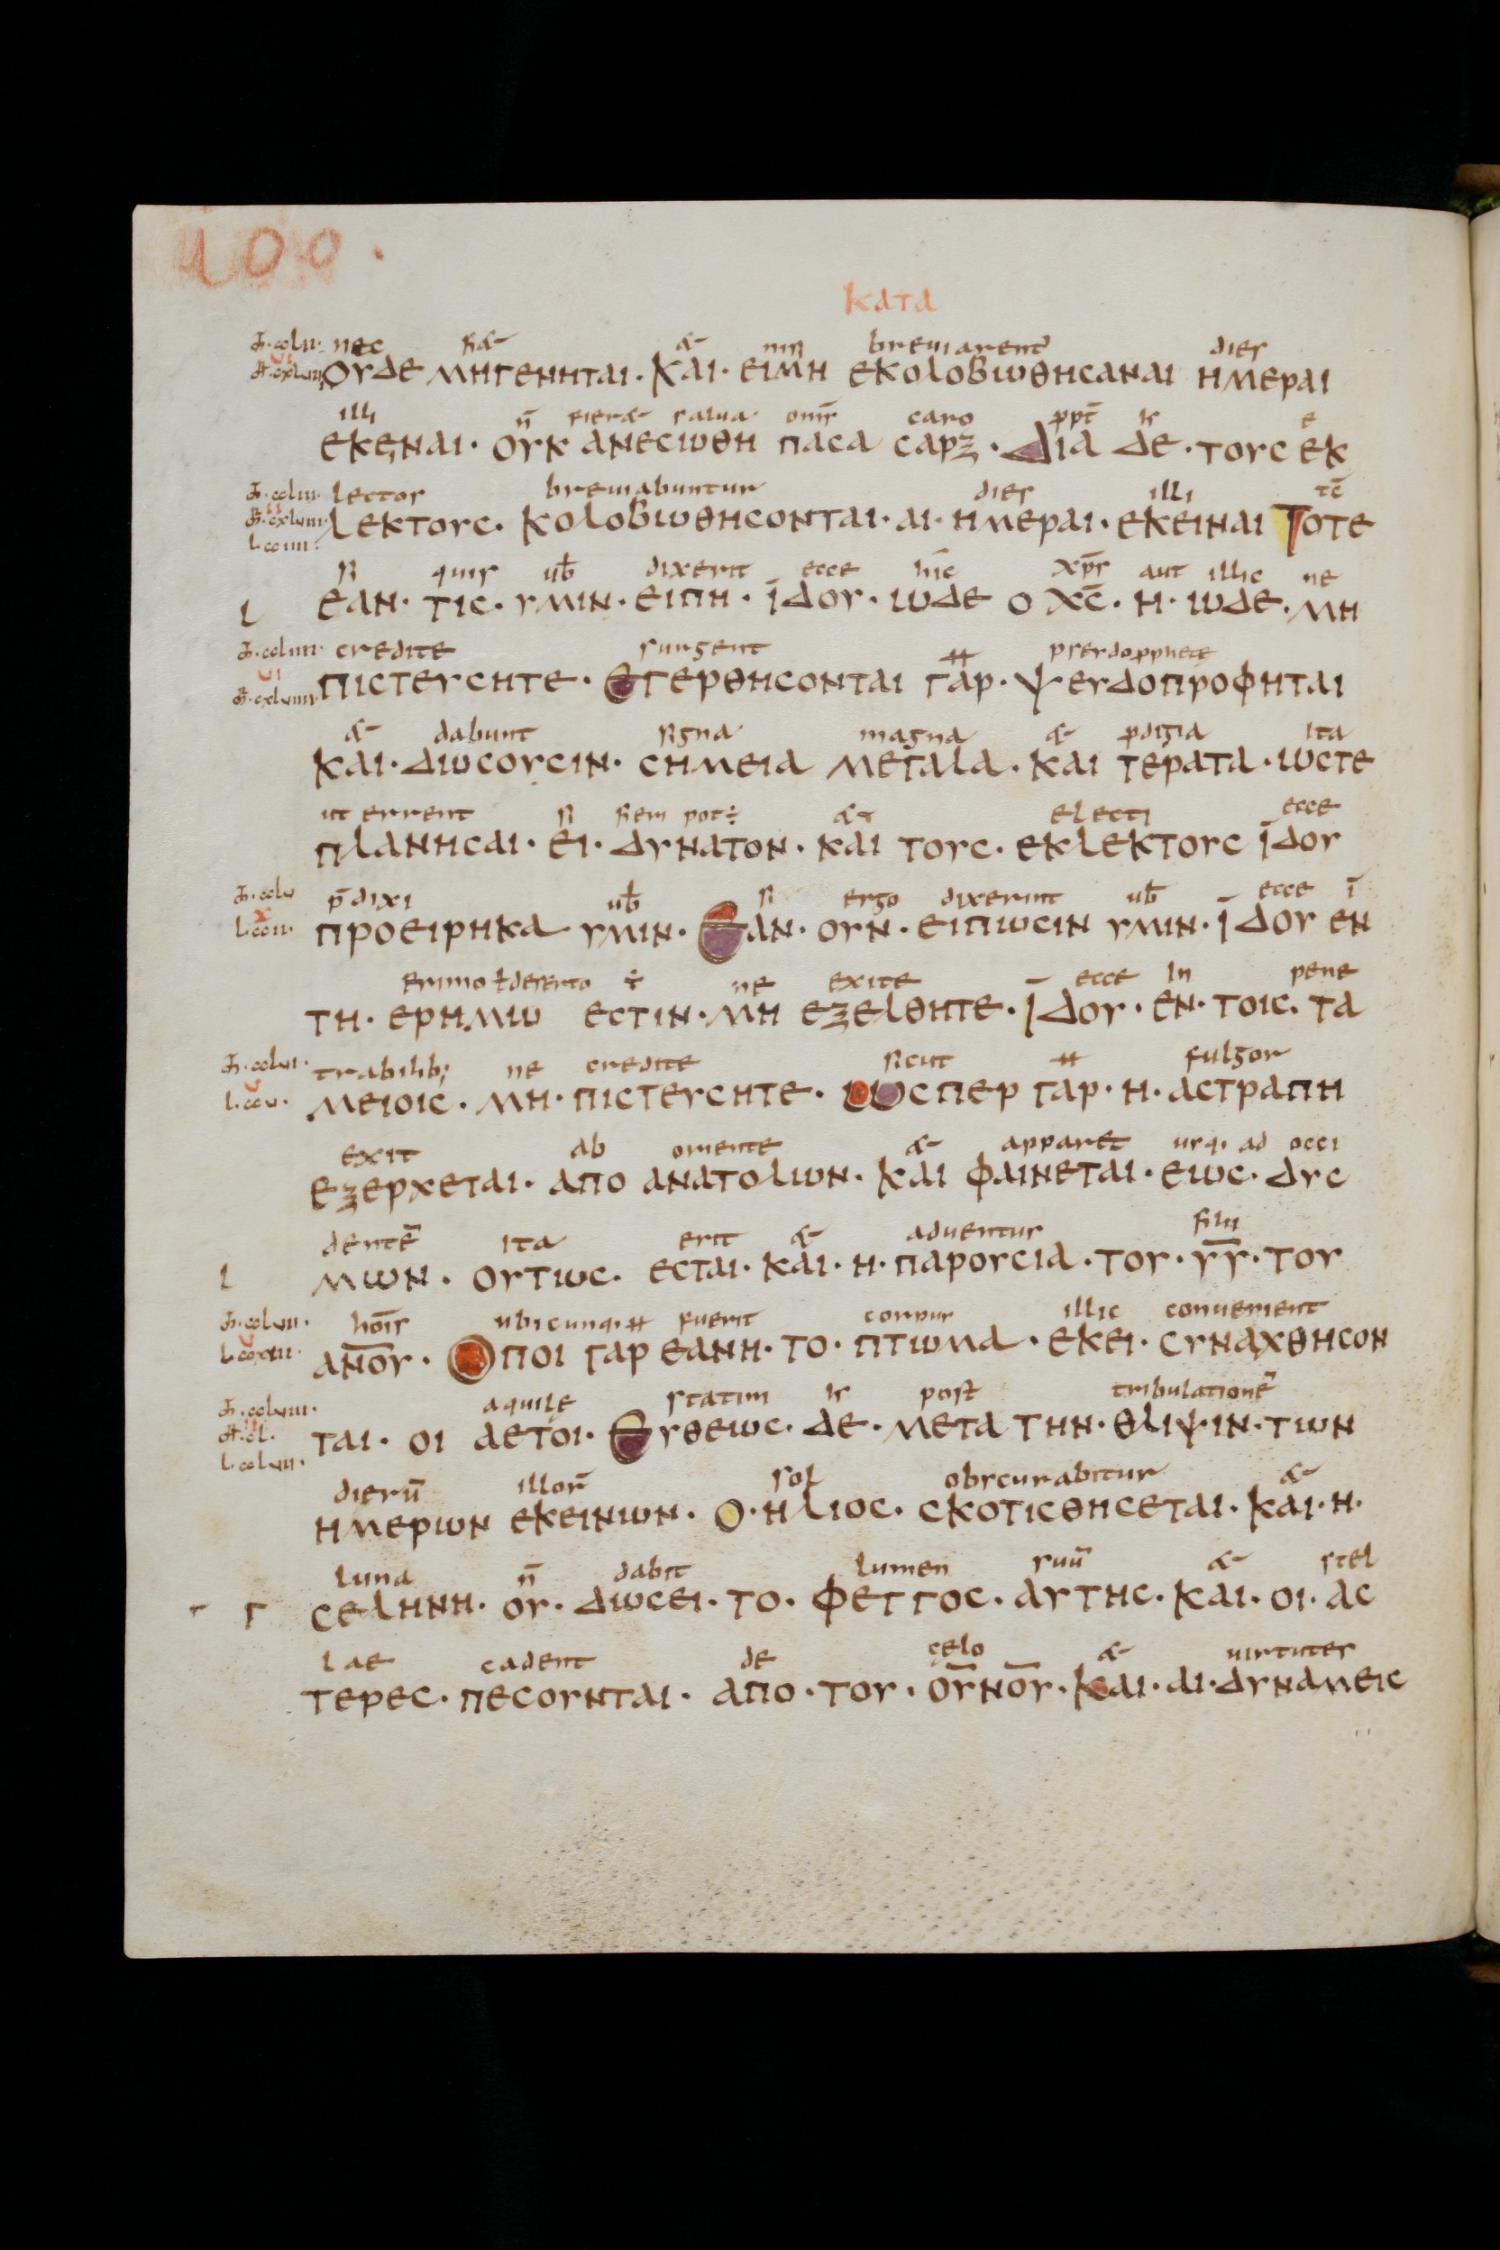 100.
κατα
nec fiet et nisi breuiarent dies
ΟΥΔΕ ΜΗΓΕΝΗΤΑΙ· ΚΑΙ· ΕΙΜΗ ΕΚΟΛΟΒΙΩΘΗΣΑΝΑΙ ΗΜΕΡΑΙ
illi n̄ fieret salua omīs caro ꝓpt̄ e
ΕΚΕΝΑΙ· ΟΥΚ ΑΝΕΣΙΩΘΗ ΠΑΣΑ ΣΑΡΞ· ΔΙΑ ΔΕ· ΤΟΥΣ ΕΚ
lectos breuiabuntur dies illi tc̄
ΛΕΚΤΟΥΣ· ΚΟΛΟΒΙΩΘΗΣΟΝΤΑΙ· ΑΙ· ΗΜΕΡΑΙ· ΕΚΕΙΝΑΙ ΤΟΤΕ
si quis ub̄ dixerit ecce hīc xp̄s aut illic ne
ΕΑΝ· ΤΙΣ· ΥΜΙΝ· ΕΙΠΗ· ΙΔΟΥ· ΙΩΔΕ Ο ΧΣ̄· Η· ΙΩΔΕ· ΜΗ
credite surgent pseudopphete
ΠΙΣΤΕΥΣΗΤΕ· ΕΓΕΡΘΗΣΟΝΤΑΙ ΓΑΡ· ΨΕΥΔΟΠΡΟΦΗΤΑΙ
et dabunt signa magna et pdigia ita
ΚΑΙ· ΔΙΩΣΟΥΣΙΝ· ΣΗΜΕΙΑ ΜΕΓΑΛΑ· ΚΑΙ ΤΕΡΑΤΑ· ΙΩΣΤΕ
ut errent si fieri pot÷ et electi ecce
ΠΛΑΝΗΣΑΙ· ΕΙ· ΔΥΝΑΤΟΝ· ΚΑΙ ΤΟΥΣ· ΕΚΛΕΚΤΟΥΣ ΙΔΟΥ
p̄dixi ub̄ si ergo dixerint ub̄ ecce ī
ΠΡΟΕΙΡΗΚΑ ΥΜΙΝ· ΕΑΝ· ΟΥΝ· ΕΙΠΙΩΣΙΝ ΥΜΙΝ· ΙΔΟΥ ΕΝ
eremo ł deserto ÷ ne exite ecce in pene
ΤΗ· ΕΡΗΜΙΩ ΕΣΤΙΝ· ΜΗ ΕΞΕΛΘΗΤΕ· ΙΔΟΥ· ΕΝ· ΤΟΙΣ· ΤΑ
trabilib; ne credite sicut fulgor
ΜΕΙΟΙΣ· ΜΗ· ΠΙΣΤΕΥΣΗΤΕ· ΙΩΣΠΕΡ ΓΑΡ· Η· ΑΣΤΡΑΠΗ
exit ab oriente et apparet usq· ad occi
ΕΞΕΡΧΕΤΑΙ· ΑΠΟ ΑΝΑΤΟΛΙΩΝ· ΚΑΙ ΦΑΙΝΕΤΑΙ· ΕΙΩΣ· ΔΥΣ
dentē ita erit et aduentus filii
ΜΩΝ· ΟΥΤΙΩΣ· ΕΣΤΑΙ· ΚΑΙ· Η· ΠΑΡΟΥΣΙΑ· ΤΟΥ· ΥῩ· ΤΟΥ
hoīs ubicunq· fuerit corpus illic conuenient
ΑΝΟΥ· ΟΠΟΙ ΓΑΡ ΕΑΝΗ· ΤΟ· ΠΤΙΩΜΑ· ΕΚΕΙ· ΣΥΝΑΧΘΗΣΟΝ
aquile statim post tribulationē
ΤΑΙ· ΟΙ ΑΕΤΟΙ· ΕΥΘΕΙΩΣ· ΔΕ· ΜΕΤΑ ΤΗΝ· ΘΛΙΨ·ΙΝ· ΤΙΩΝ
dierū illor̄ sol obscurabitur et
ΗΜΕΡΙΩΝ ΕΚΕΙΝΙΩΝ· Ο· ΗΛΙΟΣ· ΣΚΟΤΙΣΘΗΣΕΤΑΙ· ΚΑΙ· Η·
luna n̄ dabit lumen suū et stel
ΣΕΛΗΝΗ· ΟΥ· ΔΙΩΣΕΙ· ΤΟ· ΦΕΓΓΟΣ· ΑΥΤΗΣ· ΚΑΙ· ΟΙ· ΑΣ
lae cadent de celo et uirtutes
ΤΕΡΕΣ· ΠΕΣΟΥΝΤΑΙ· ΑΠΟ· ΤΟΥ· ΟΥΝΟΥ· ΚΑΙ· ΑΙ· ΔΥΝΑΜΕΙΣ